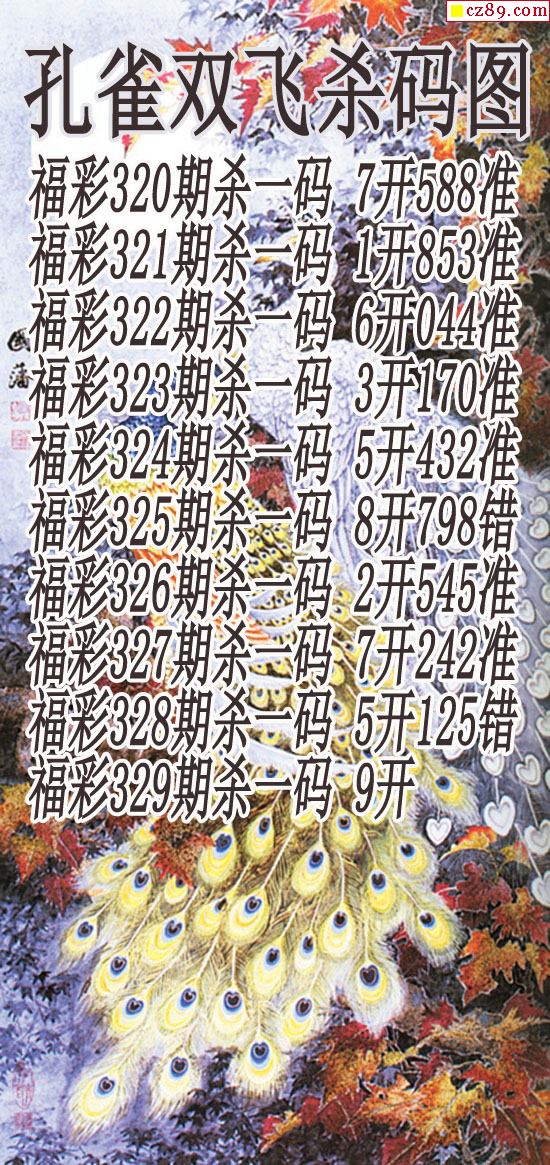 cz89.com
孔雀双飞杀码图
福彩320期杀一码 7开588准
福彩321期杀一码 1开853准
福彩322期杀一码 6开044准
福彩323期杀一码 3开170准
福彩324期杀一码 5开432准
福彩325期杀一码 8开798错
福彩326期杀一码 2开545准
福彩327期杀一码 7开242准
福彩328期杀一码 5开125错
福彩329期杀一码 9开